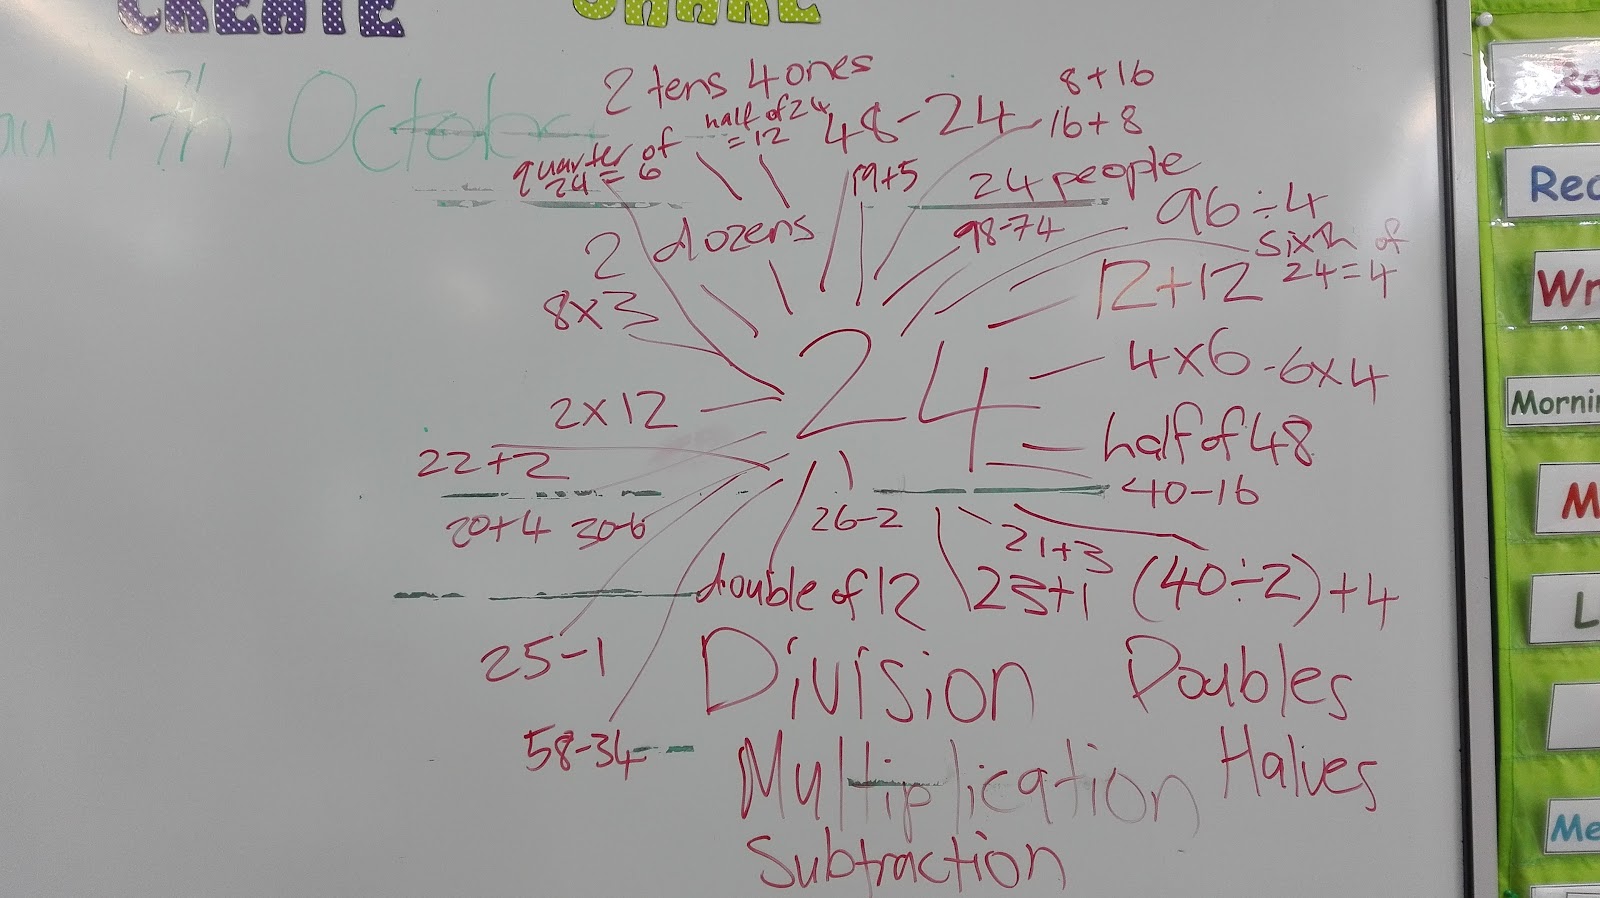 CREATE SHARE
17th October
2 tens 4 ones
half of 24
= 12
48-24
8+16
16+8
quarter of
24 = 6
19+5
24 people
98-74
96÷4
sixth of
24=4
2 dozens
12+12
8x3
24
4x6 - 6x4
2x12
half of 48
22+2
40-16
20+4 30-6
26-2
21+3
double of 12
23+1
(40÷2)+4
25-1
58-34
Division Doubles
Multiplication Halves
Subtraction
Morni